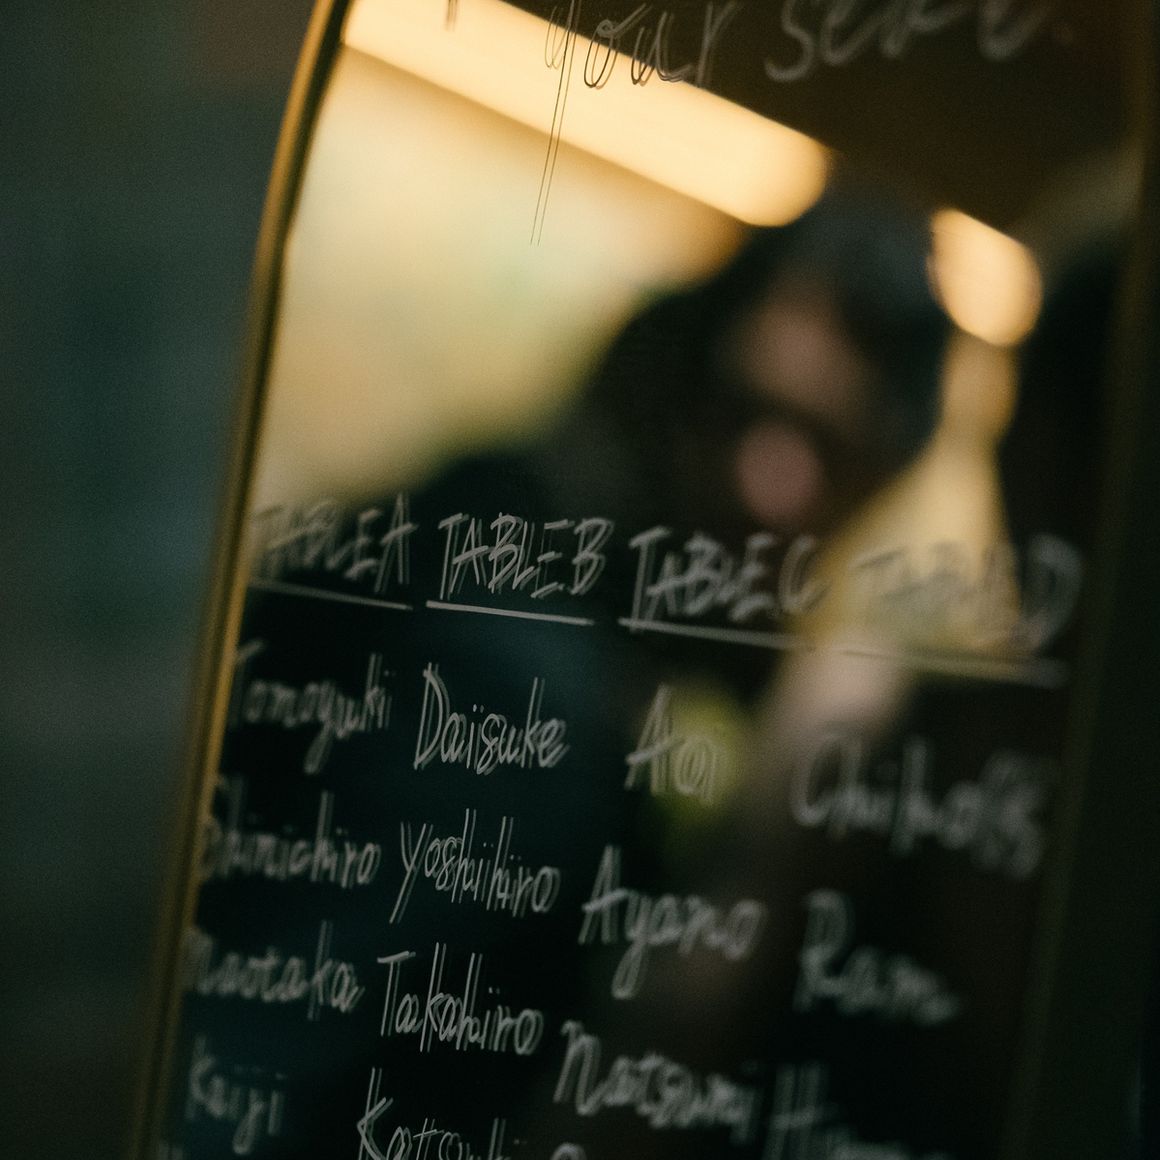 your seat
TABLE A TABLE B TABLE C TABLE D
Tomoyuki Daisuke Aoi
Shinichiro Yoshihiro Ayano Ram
Naotaka Takahiro Natsumi
Keiji Katsuki